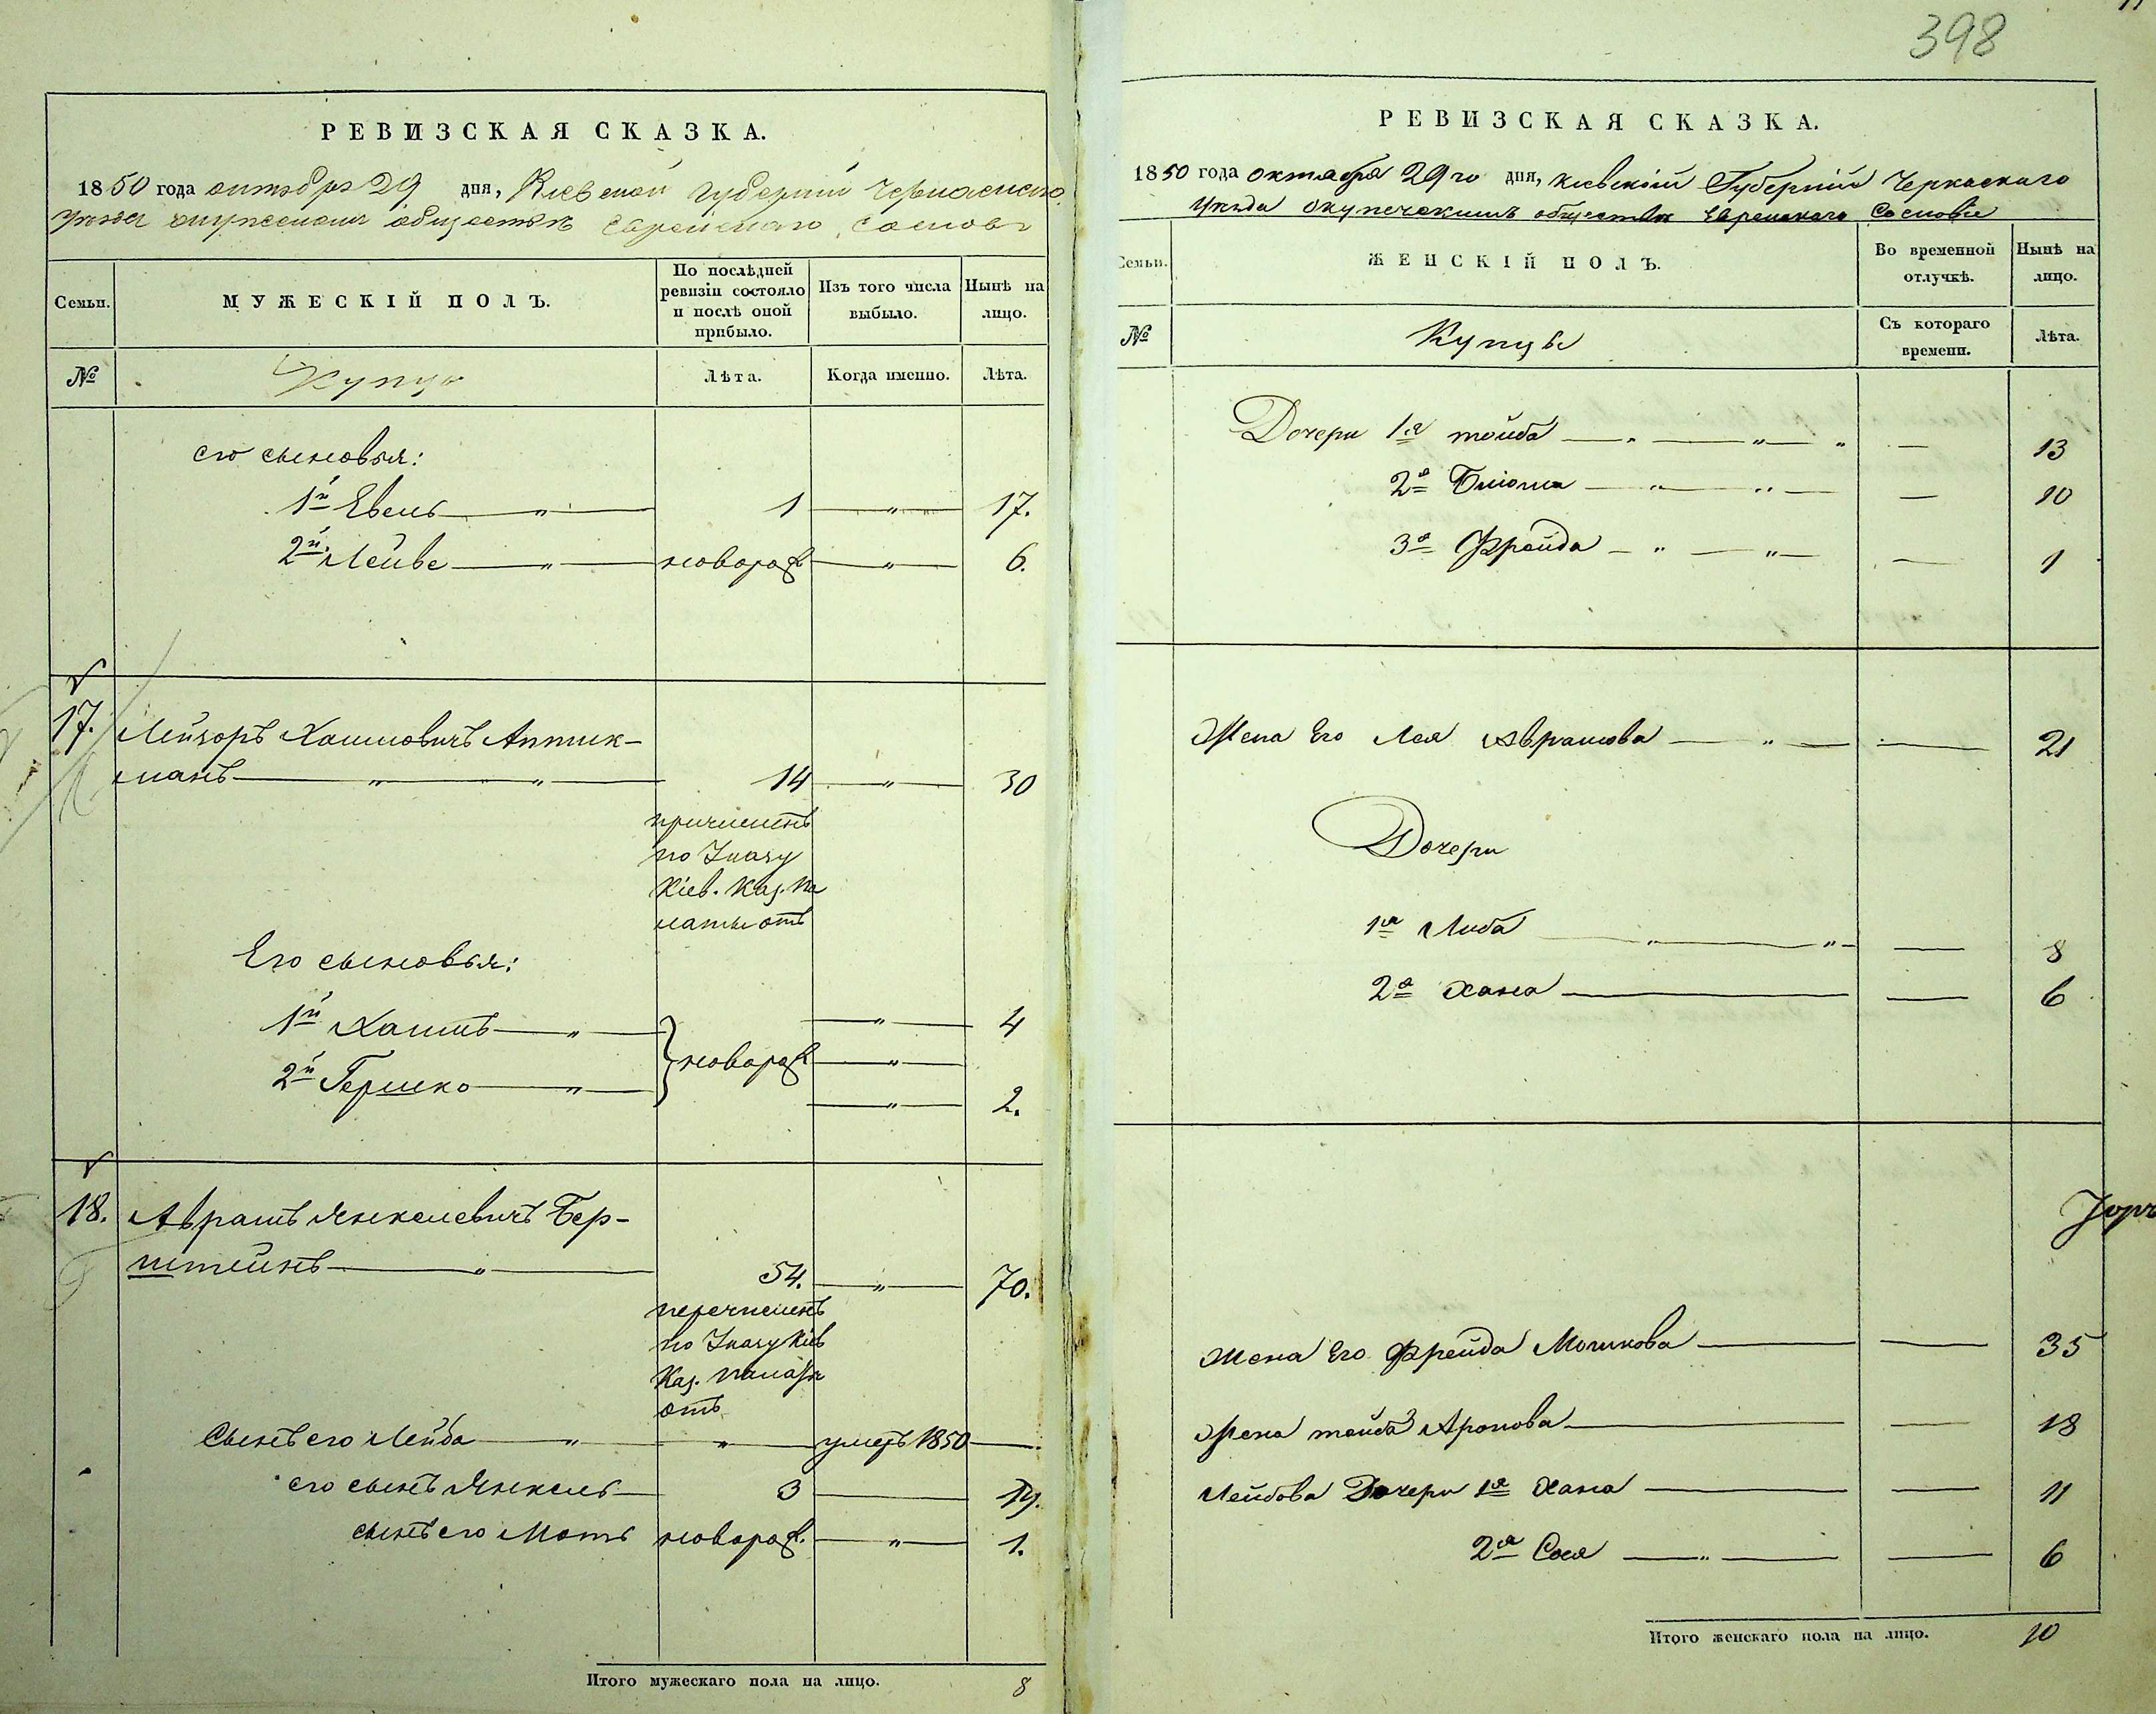 398
РЕВИЗСКАЯ СКАЗКА.
1850 года октября 29 дня, Киевской Губернии Черкаскаго
уезда о купеческомъ обществѣ Еврейскаго Сословия
Семьи.
МУЖЕСКІЙ ПОЛЪ.
По послѣдней ревизіи состояло и послѣ оной прибыло.
Изъ того числа выбыло.
Нынѣ на лицо.
№
Купцы
Лѣта.
Когда именно.
Лѣта.
его сыновья:
1й Евель — „ — 1 — „ — 17.
2й Лейве — „ — новорож — „ — 6.
17. Лейзоръ Хаимовичъ Аптик-
манъ — „ — „ — 14 — „ — 30
причисленъ
по Указу
Кіев. Каз. Па
латы отъ
Его сыновья:
1й Хаимъ — „ — } новорож — „ — 4
2й Гершко — „ — — „ — 2.
18. Аврамъ Янкелевичъ Бер-
штейнъ — „ — 54. — „ — 70.
перечисленъ
по Указу Кіев
Каз. Палаты
отъ
Сынъ его Лейба — „ — „ — умеръ 1850 —
его сынъ Янкель — 3 — 19.
сынъ его Моть новорож. — „ — 1.
Итого мужескаго пола на лицо. 8
РЕВИЗСКАЯ СКАЗКА.
1850 года октября 29го дня, Киевской Губерніи Черкаскаго
Уезда о купеческимъ обществѣ Еврейскаго Сословіе
Семьи.
ЖЕНСКІЙ ПОЛЪ.
Во временной отлучкѣ.
Нынѣ на лицо.
№
Купцы
Съ котораго времени.
Лѣта.
Дочери 1я тойба — „ — „ — „ — 13
2я — „ — „ — — 10
3я Фрейда — „ — „ — — 1
Жена Его Лея Аврамова — „ — — 21
Дочери
1я Люба — „ — „ — — 8
2я Хана — — 6
Жена Его Фрейда Мошкова — — 35
Жена тойба Аронова — — 18
Лейбова Дочери 1я Хана — — 11
2я Сося — „ — — 6
Итого женскаго пола на лицо. 10